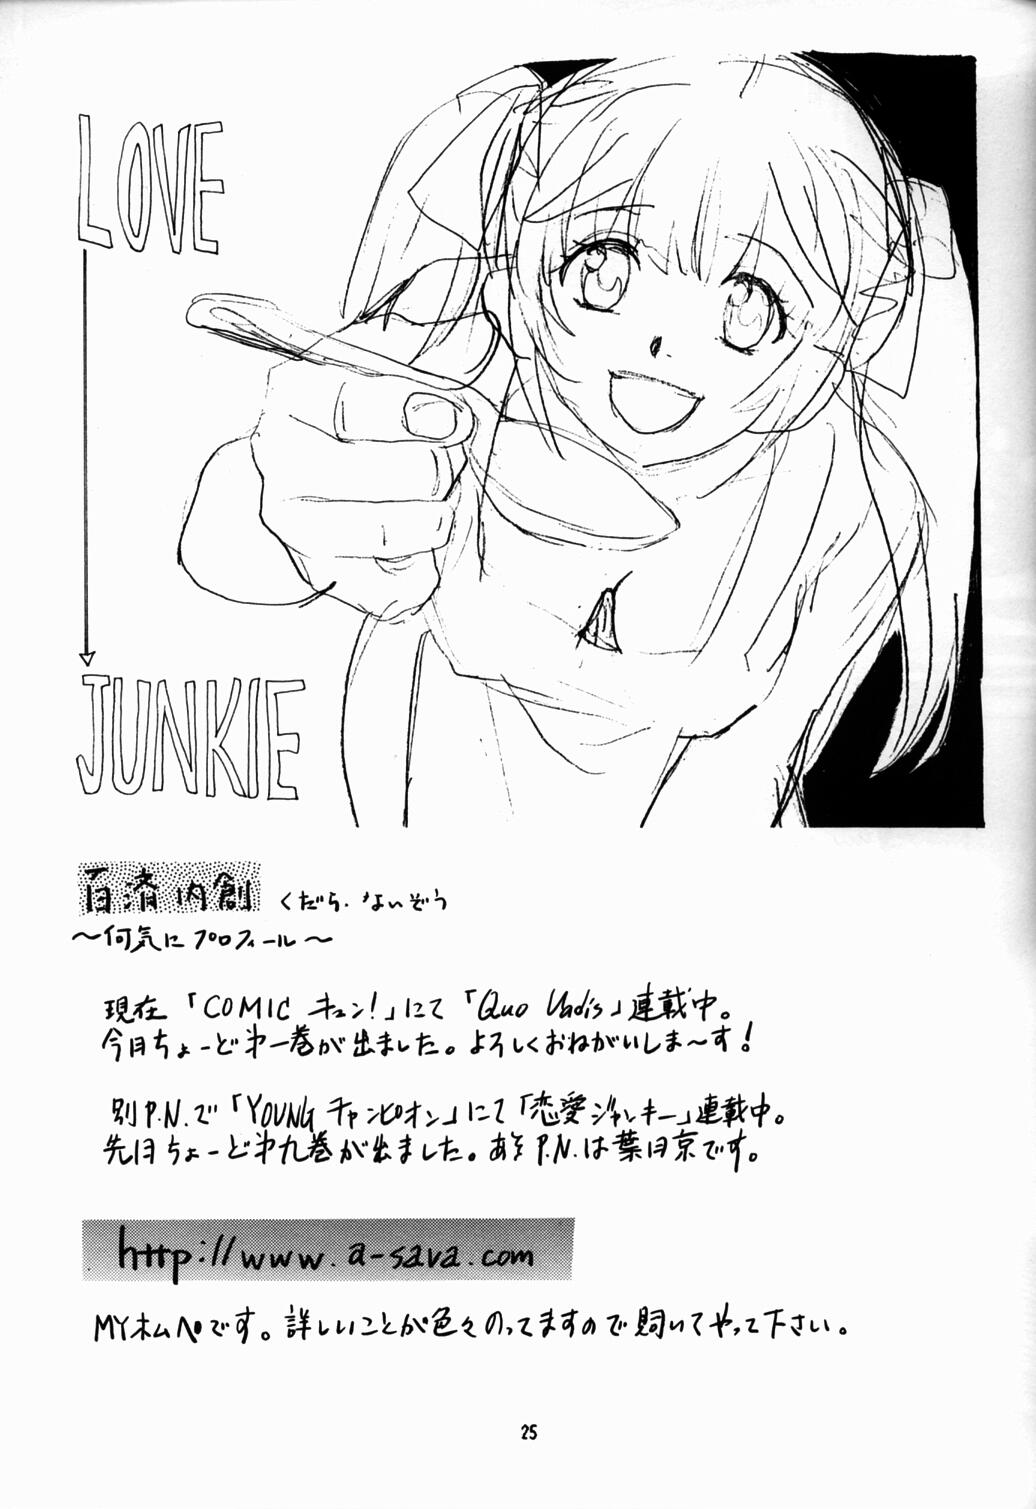 LOVE
JUNKIE
百済内創 くだら・ないぞう
〜何気にプロフィール〜
現在「COMIC キュン!」にて「Quo Vadis」連載中。
今月ちょーど第一巻が出ました。よろしくおねがいしま〜す!
別P.N.で「YOUNG チャンピオン」にて「恋愛ジャンキー」連載中。
先月ちょーど第九巻が出ました。あそP.N.は葉月京です。
http://www.a-sava.com
MYホムペです。詳しいことが色々のってますので覗いてやって下さい。
25